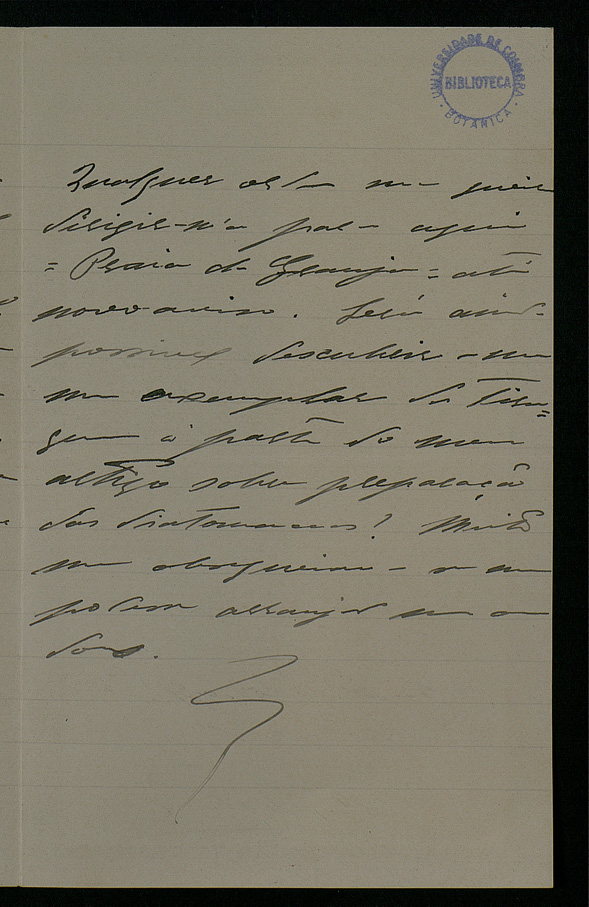 UNIVERSIDADE DE COIMBRA
BIBLIOTECA
BOTANICA
Qualquer me queira
dirigir-m'a para aqui
= Praia da Granja = até
novo aviso. Será aind-
possivel descubrir-me
um exemplar da tira=
gem á parte do meu
artigo sobre preparação
das diatomaceas? Muito
me obsequiava se me
podesse arranjar um ou
dois.